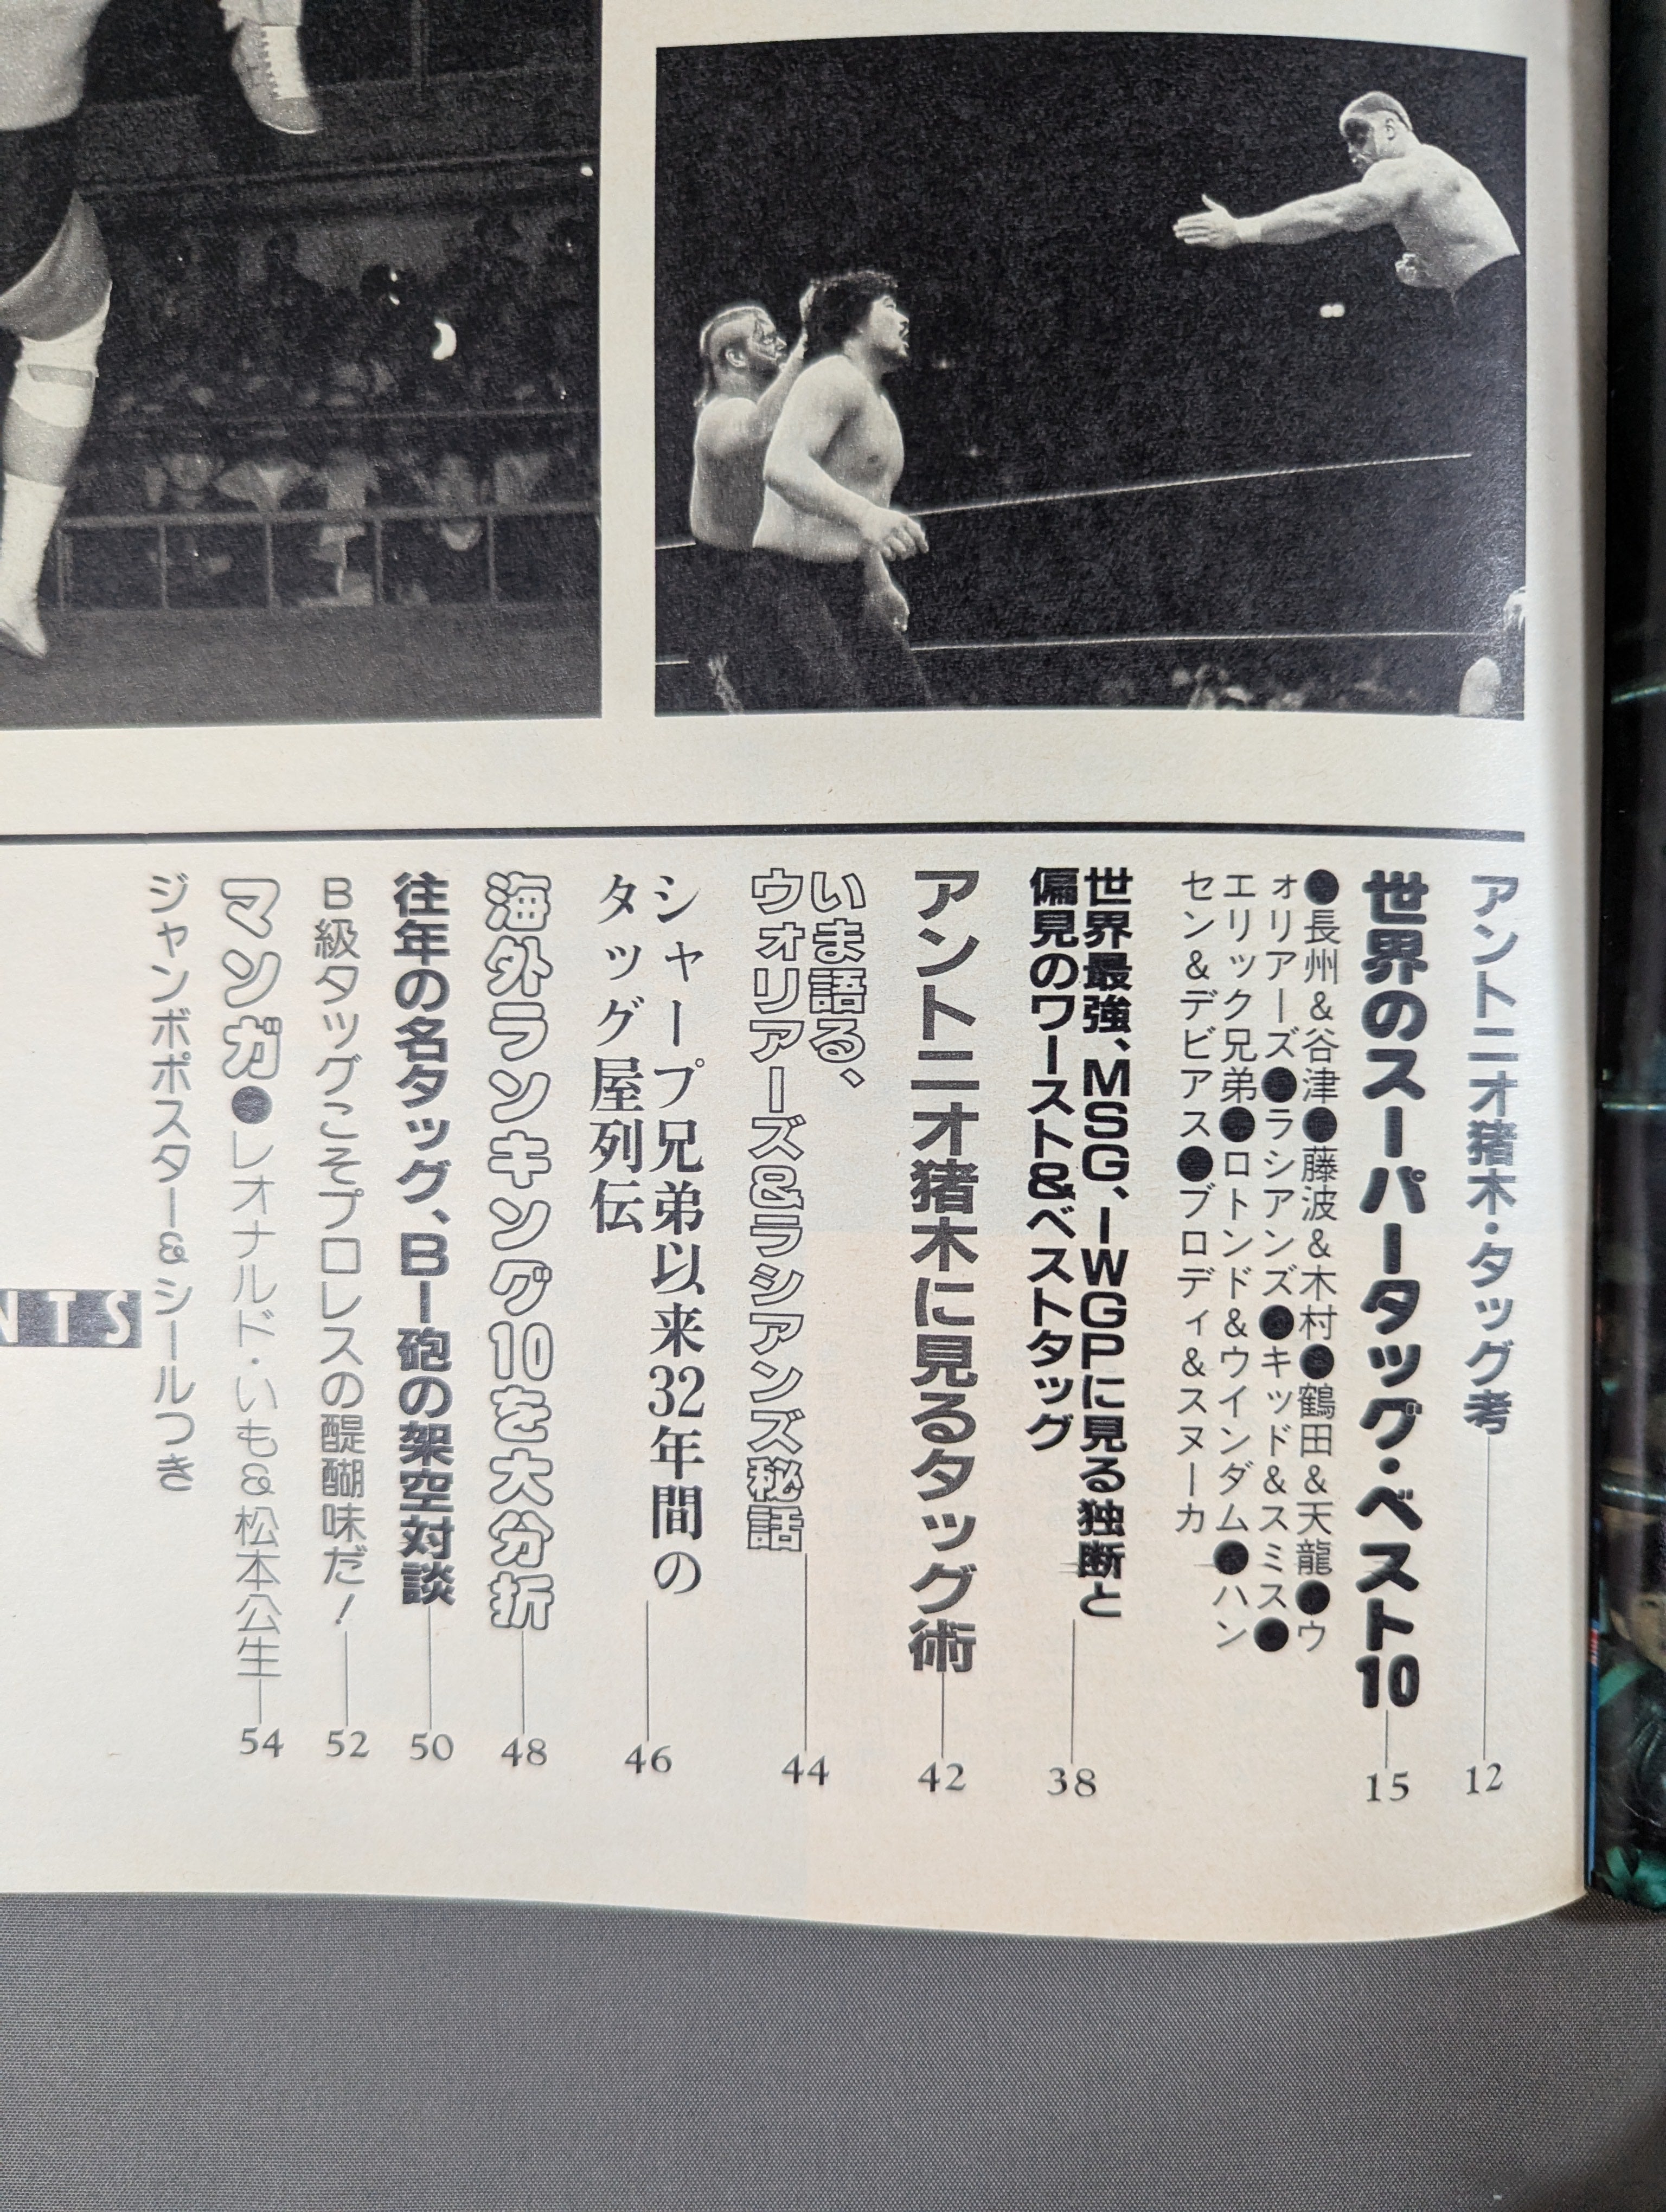 アントニオ猪木・タッグ考 12
世界のスーパータッグ・ベスト10 15
●長州＆谷津●藤波＆木村●鶴田＆天龍●ウ
ォリアーズ●ラシアンズ●キッド＆スミス●
エリック兄弟●ロトンド＆ウインダム●ハン
セン＆デビアス●ブロディ＆スヌーカ
世界最強、MSG、IWGPに見る独断と
偏見のワースト＆ベストタッグ 38
アントニオ猪木に見るタッグ術 42
いま語る、
ウォリアーズ＆ラシアンズ秘話 44
シャープ兄弟以来32年間の
タッグ屋列伝 46
海外ランキング10を大分折 48
往年の名タッグ、BI砲の架空対談 50
B級タッグこそプロレスの醍醐味だ！ 52
マンガ●レオナルド・いも＆松本公生 54
ジャンボポスター＆シールつき
NTS